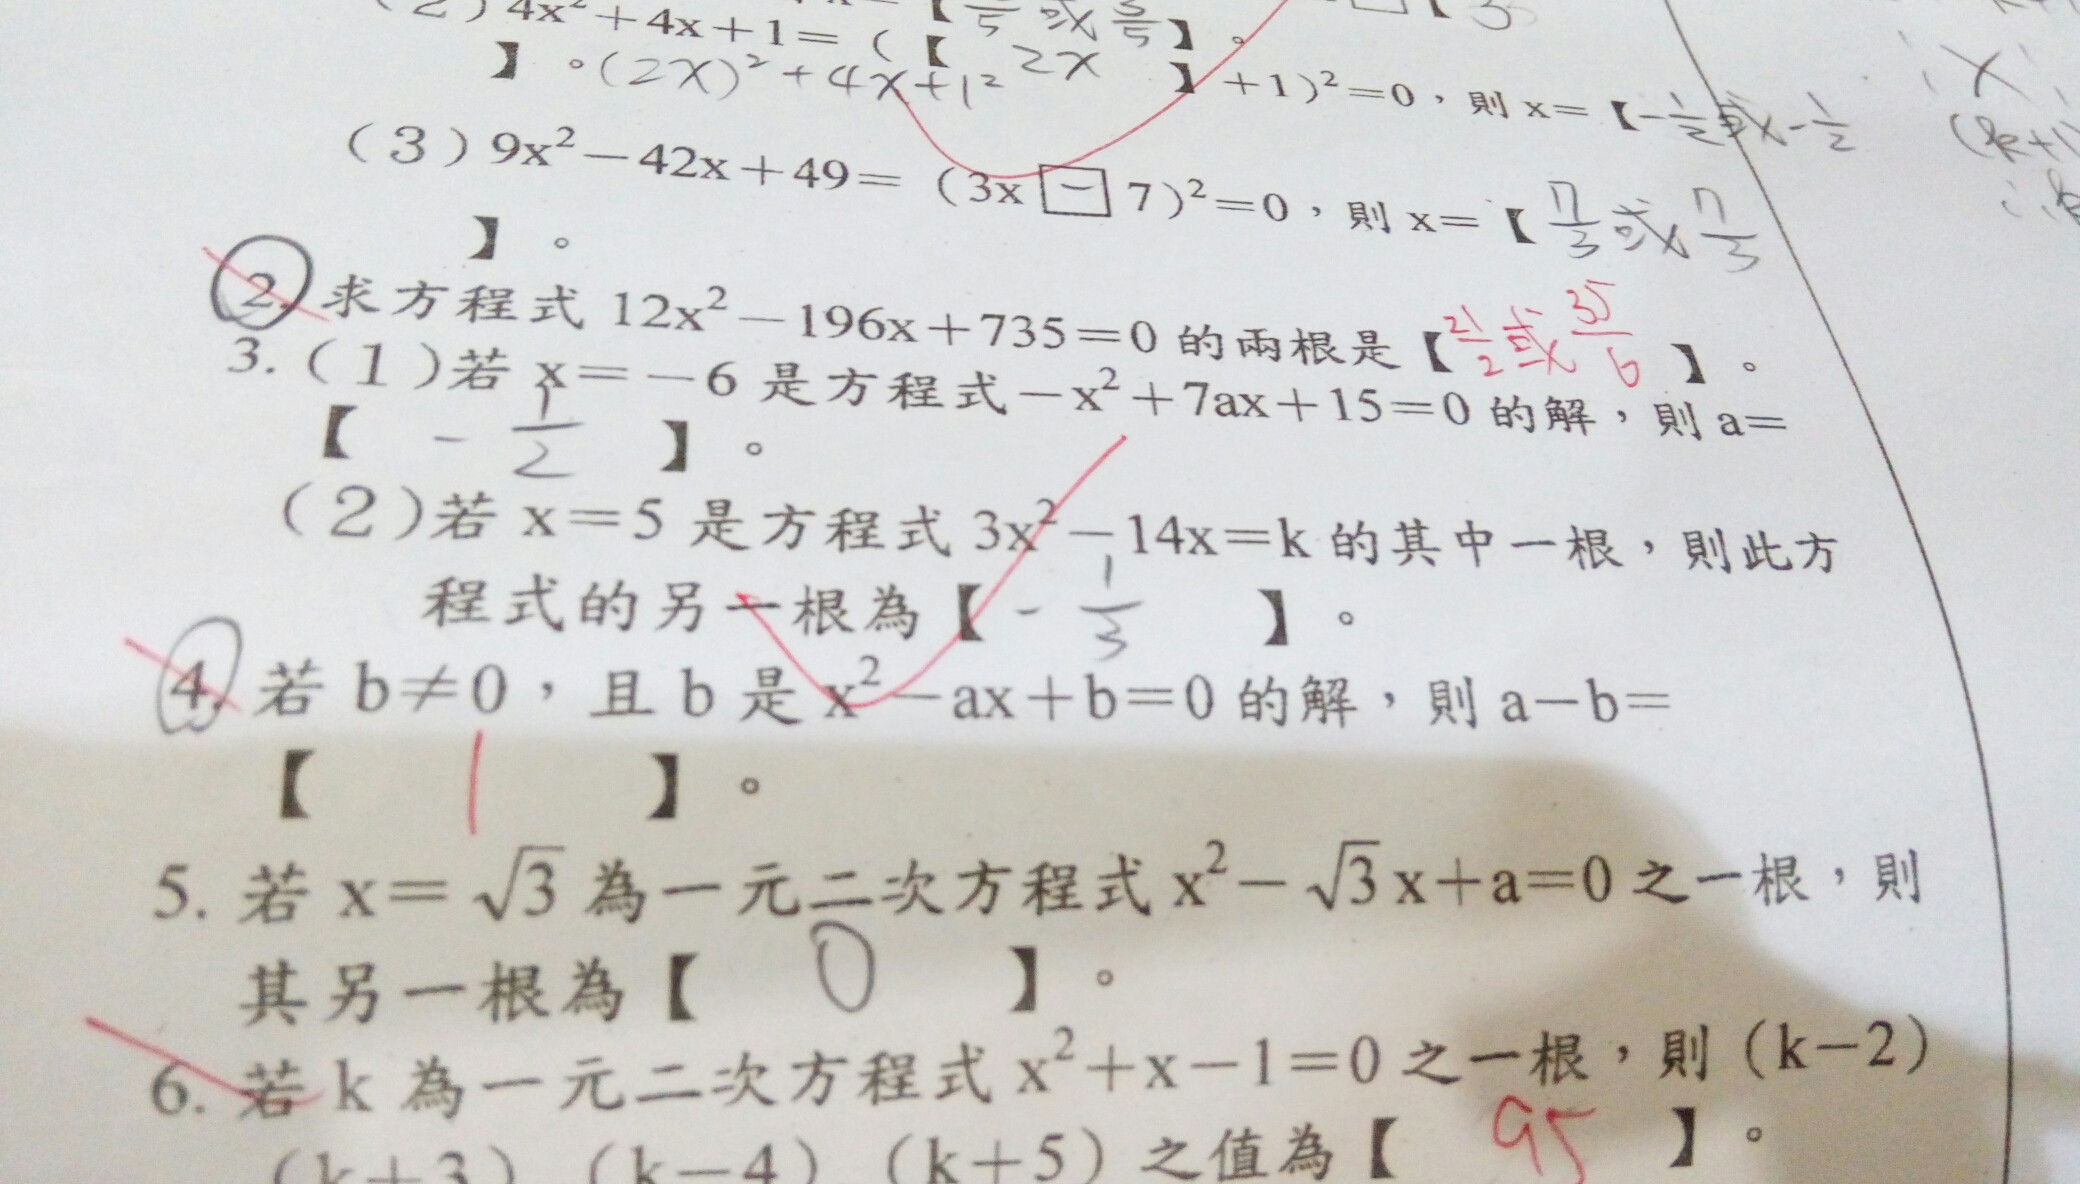 (2)4x²+4x+1=(【 2x 】+1)²=0,則x=【-1/2或-1/2
】。(2x)²+4x+1²
(3)9x²-42x+49=(3x[-]7)²=0,則x=【7/3或7/3
】。
2.求方程式12x²-196x+735=0的兩根是【21/2或35/6】。
3.(1)若x=-6是方程式-x²+7ax+15=0的解,則a=
【 -1/2 】。
(2)若x=5是方程式3x²-14x=k的其中一根,則此方
程式的另一根為【 -1/3 】。
4.若b≠0,且b是x²-ax+b=0的解,則a-b=
【 1 】。
5.若x=√3為一元二次方程式x²-√3x+a=0之一根,則
其另一根為【 0 】。
6.若k為一元二次方程式x²+x-1=0之一根,則(k-2)
(k+3)(k-4)(k+5)之值為【 95 】。